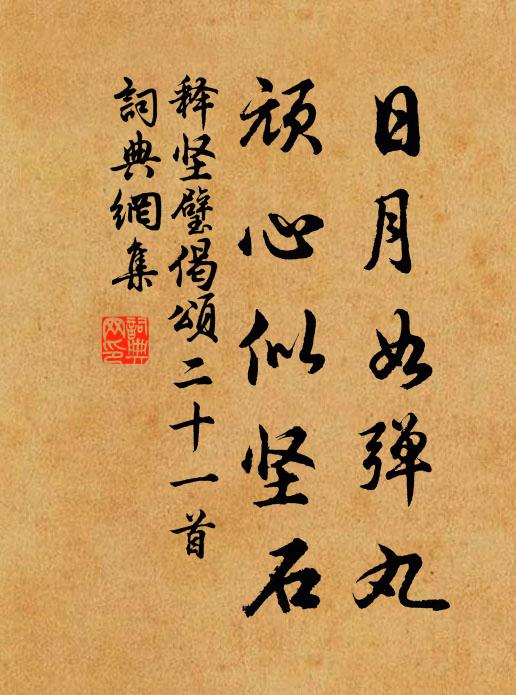 日月如弹丸
顽心似坚石
释坚璧偈颂二十一首
詞典網集
詞典网印